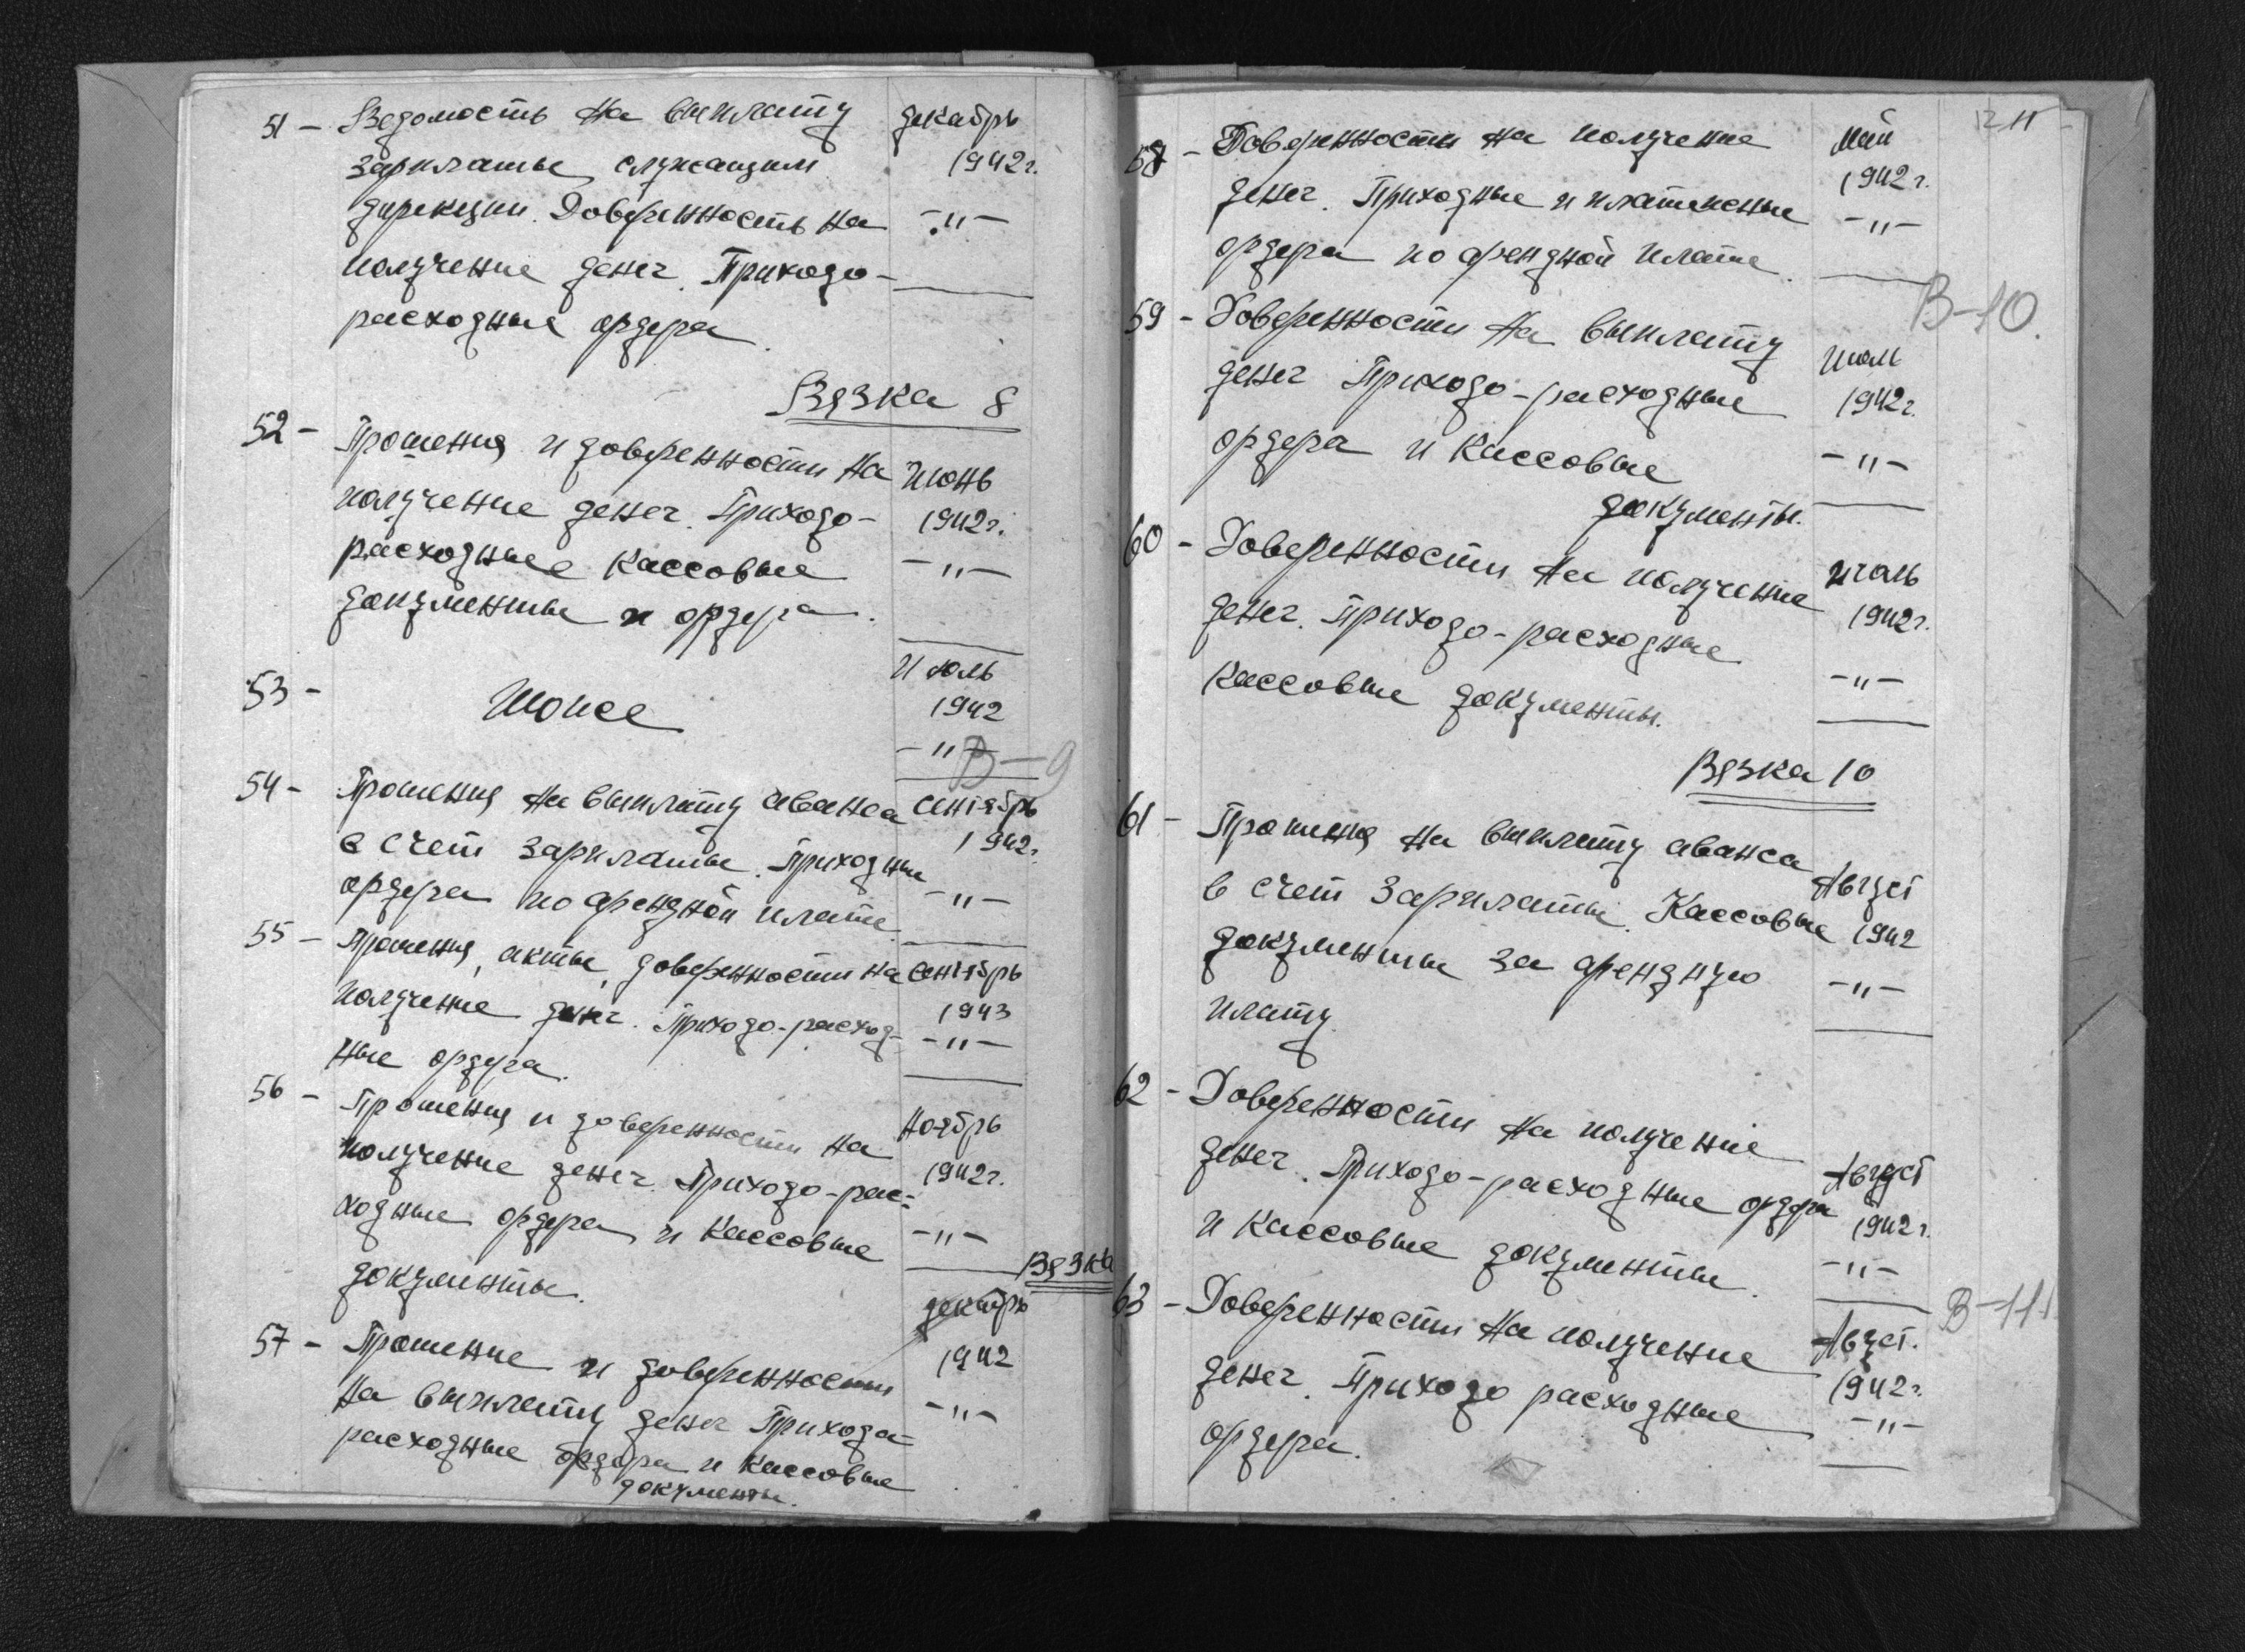 51 – Ведомость на выплату декабрь
зарплаты служащим 1942г.
дирекции. Доверенность на –"–
получение денег. Приходо-
расходные ордера.
Вязка 8
52 – Прошения и доверенности на Июнь
получение денег. Приходо- 1942г.
расходные кассовые –"–
документы и ордера.
53 – Тоже Июль
1942
–"–
В–9
54 – Прошения на выплату аванса сентябрь
в счет зарплаты. Приходные 1942г.
ордера по арендной плате –"–
55 – Прошения, акты, доверенности на сентябрь
получение денег. Приходо-расход- 1943
ные ордера. –"–
56 – Прошения и доверенности на ноябрь
получение денег. Приходо-рас- 1942г.
ходные ордера и кассовые –"–
документы.
Вязка
57 – Прошение и доверенности декабрь
на выплату денег Приходо- 1942
расходные ордера и кассовые –"–
документы.
11
58 – Доверенности на получение май
денег. Приходные и платежные 1942г.
ордера по арендной плате. –"–
В–10
59 – Доверенности на выплату июль
денег Приходо-расходные 1942г.
ордера и кассовые –"–
документы.
60 – Доверенности на получение июль
денег. Приходо-расходные 1942г.
кассовые документы. –"–
Вязка 10
61 – Прошения на выплату аванса Август
в счет зарплаты. Кассовые 1942
документы за арендную –"–
плату
62 – Доверенности на получение Август
денег. Приходо-расходные ордера 1942г.
и кассовые документы. –"–
В–11
63 – Доверенности на получение Август.
денег. Приходо расходные 1942г.
ордера. –"–